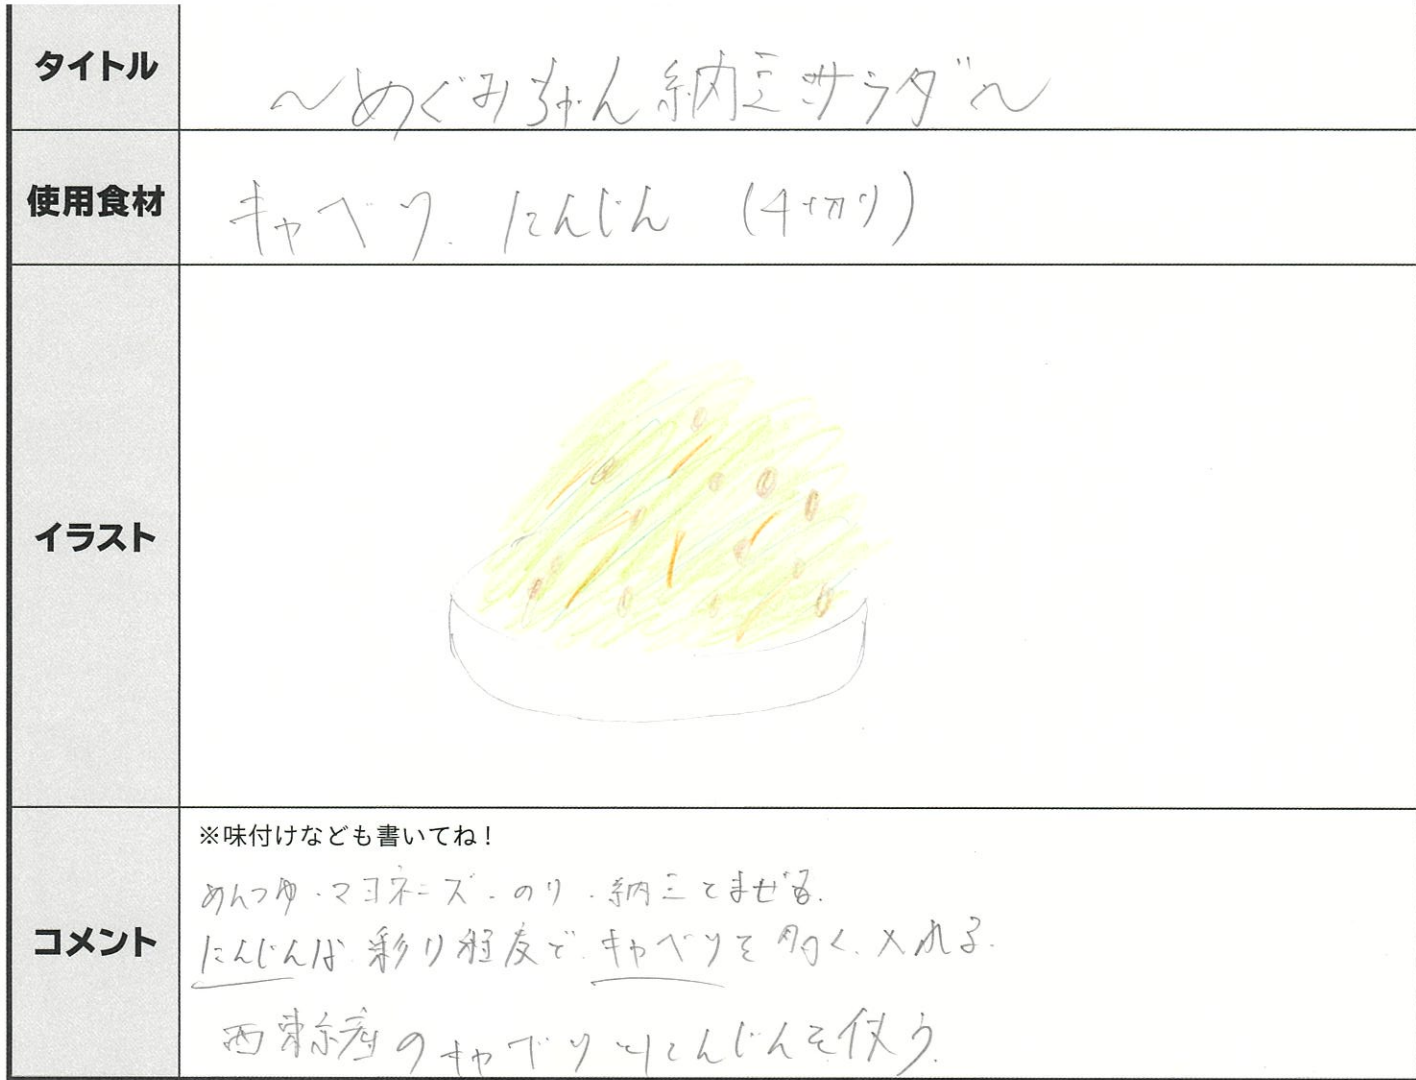 タイトル
～めぐみちゃん納豆サラダ～
使用食材
キャベツ. にんじん (千切り)
イラスト
コメント
※味付けなども書いてね!
めんつゆ・マヨネーズ・のり・納豆とまぜる.
にんじんは彩り程度で キャベツを多く入れる.
西東京産のキャベツとにんじんを使う.